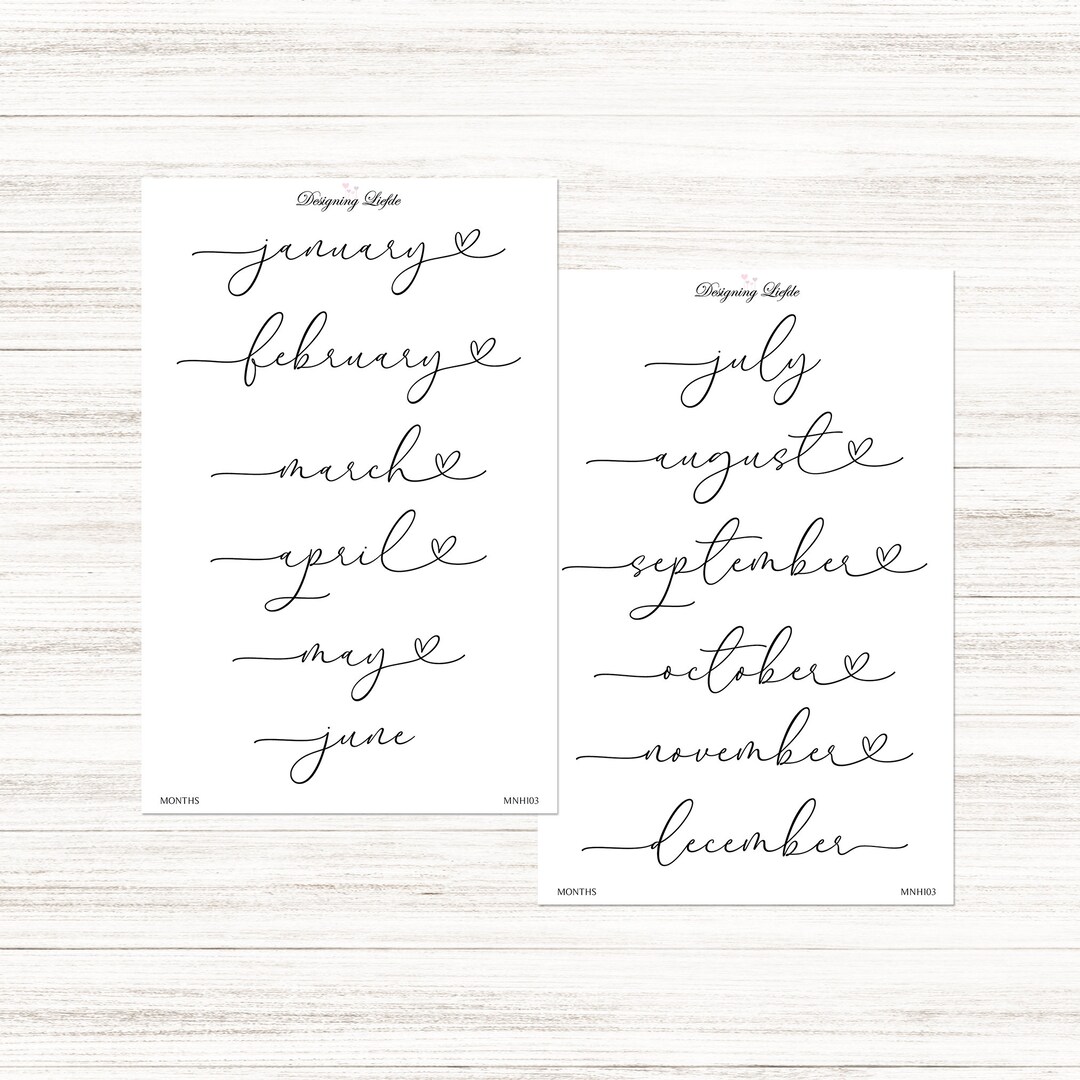 Designing Liefde
january
february
march
april
may
june
MONTHS
MNH103
Designing Liefde
july
august
september
october
november
december
MONTHS
MNH103